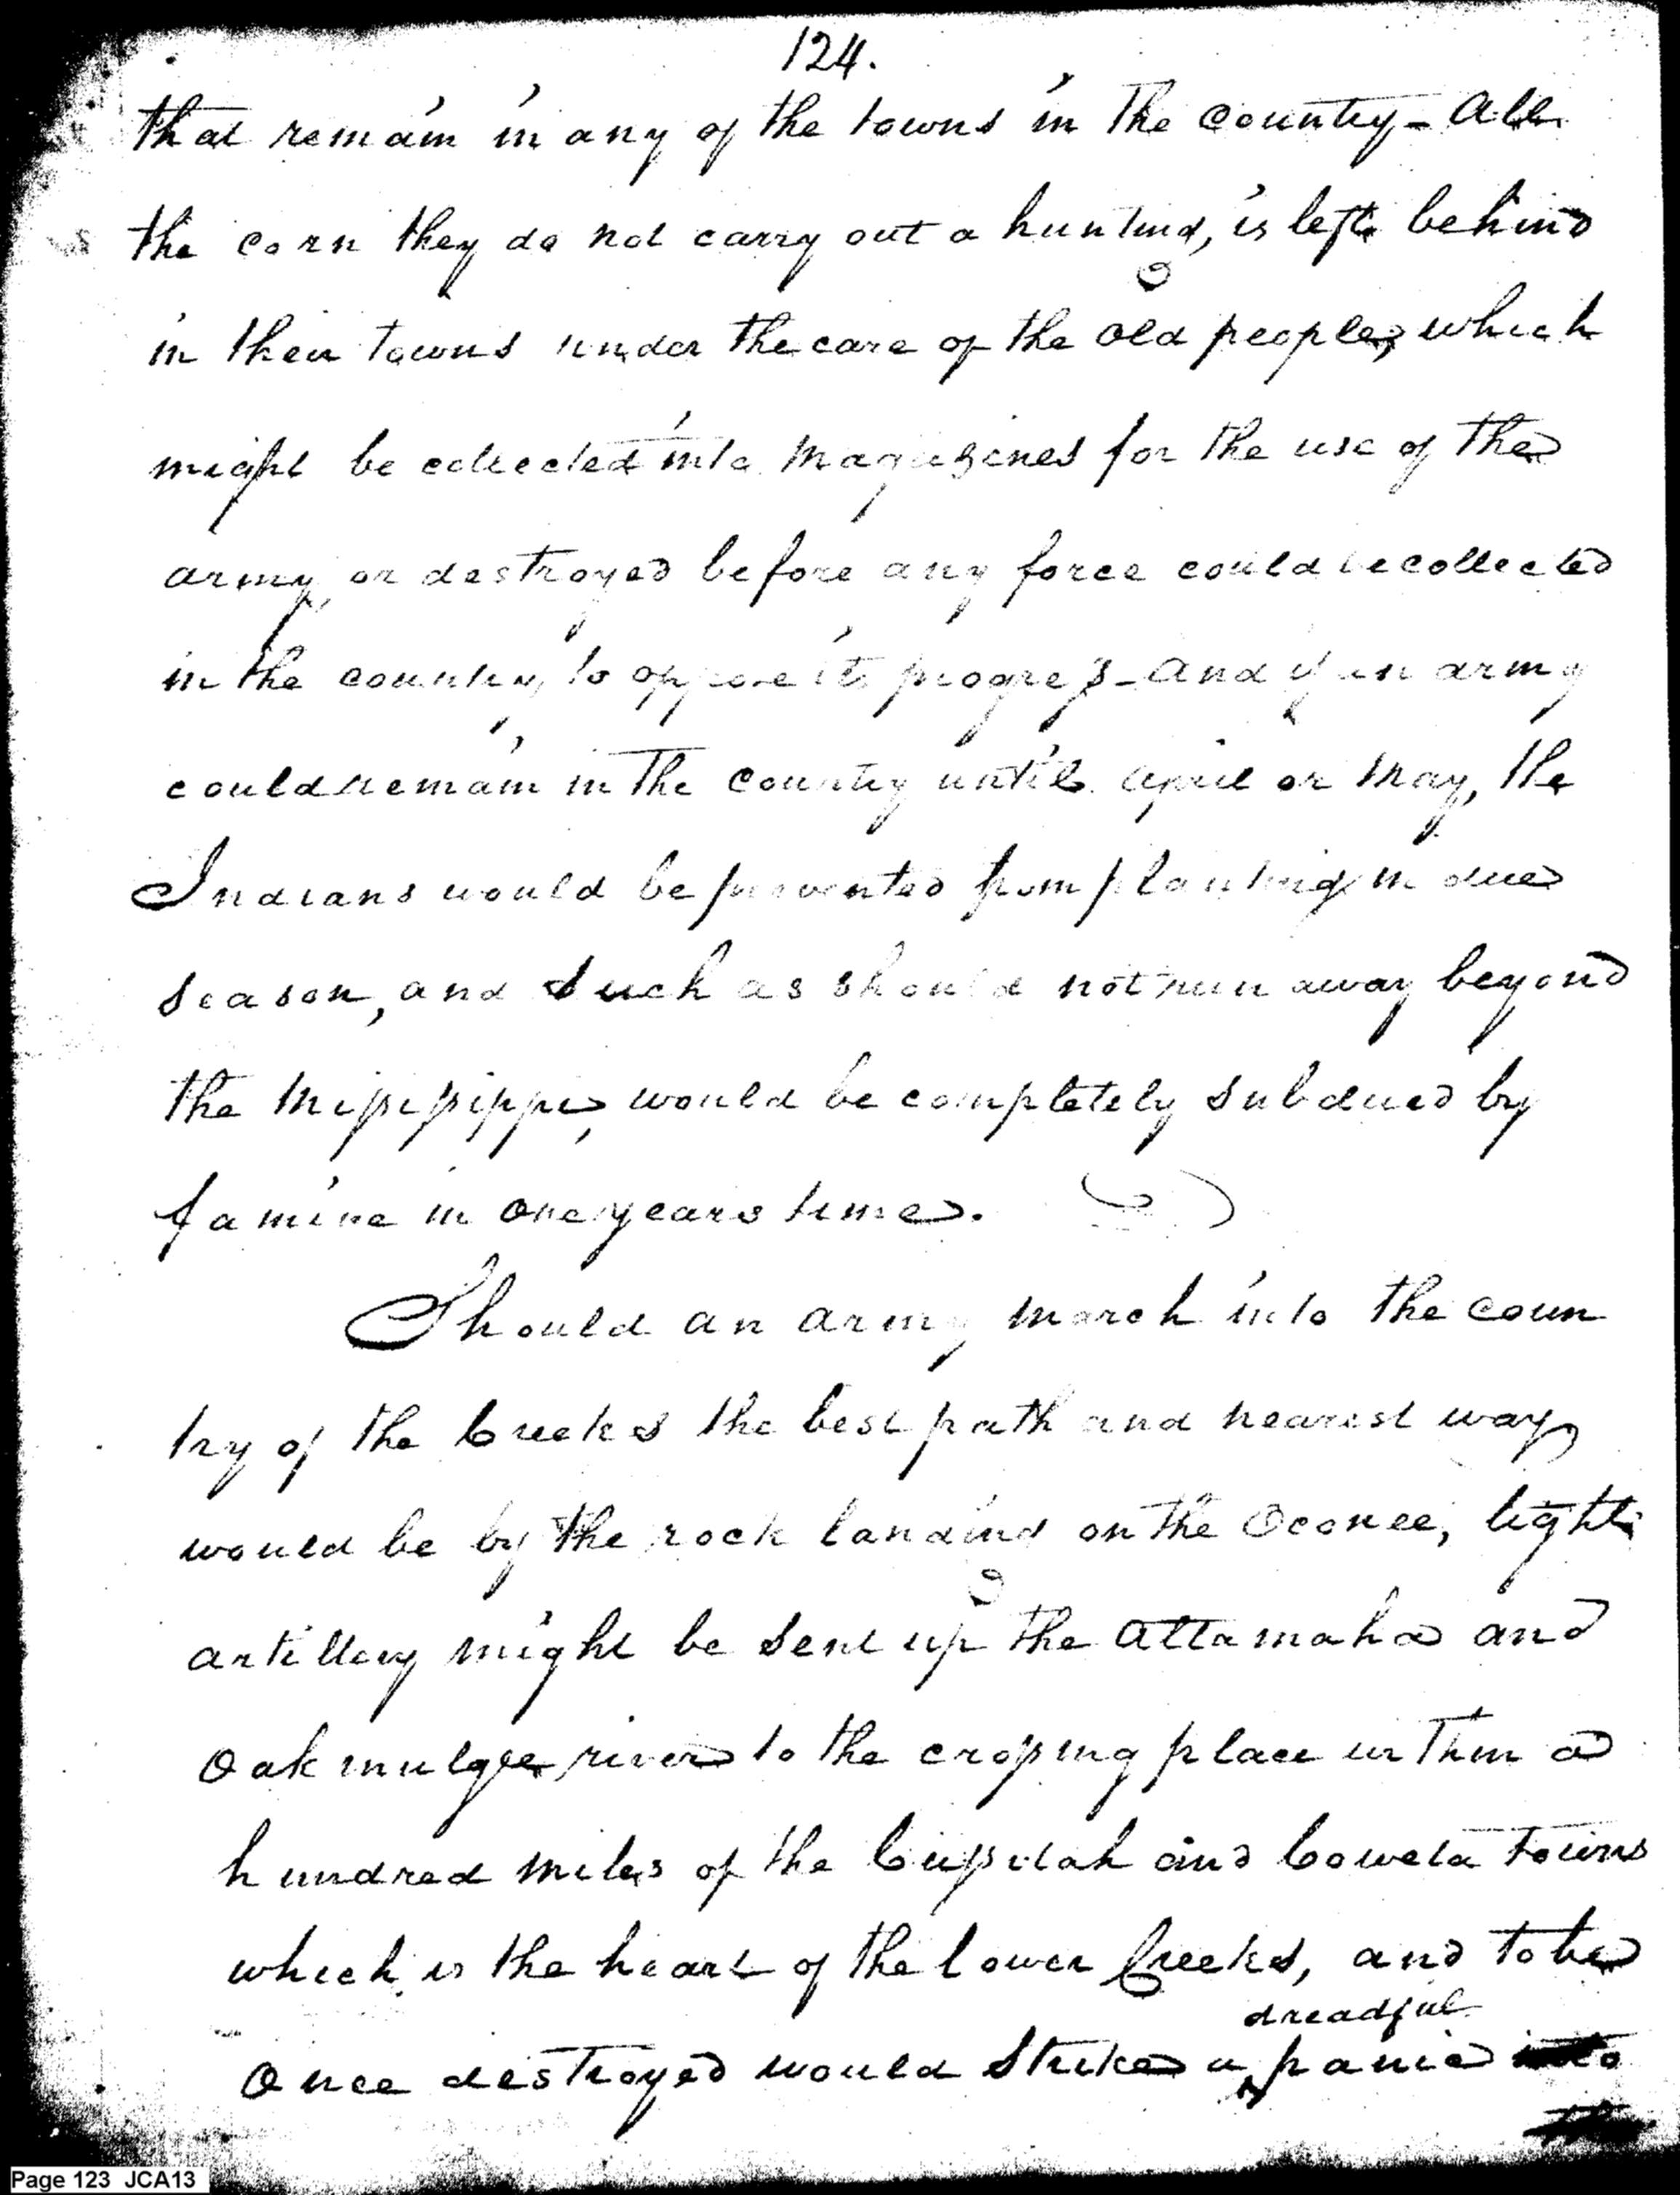 124.
that remain in any of the towns in the country - All
the corn they do not carry out a hunting, is left behind
in their towns under the care of the old people, which
might be collected into Magazines for the use of the
army, or destroyed before any force could be collected
in the country, to oppose its progress - and if an army
could remain in the country until April or May, the
Indians would be prevented from planting in due
season, and such as should not run away beyond
the Mississippi, would be completely subdued by
famine in one years time.
Should an army march into the coun
try of the Creeks the best path and nearest way
would be by the rock landing on the Oconee, light
artillery might be sent up the Attamaha and
Oakmulgee river to the crossing place within a
hundred miles of the Cussitah and Coweta towns
which is the heart of the lower Creeks, and to be
dreadful
once destroyed would strike a panic into
Page 123 JCA13